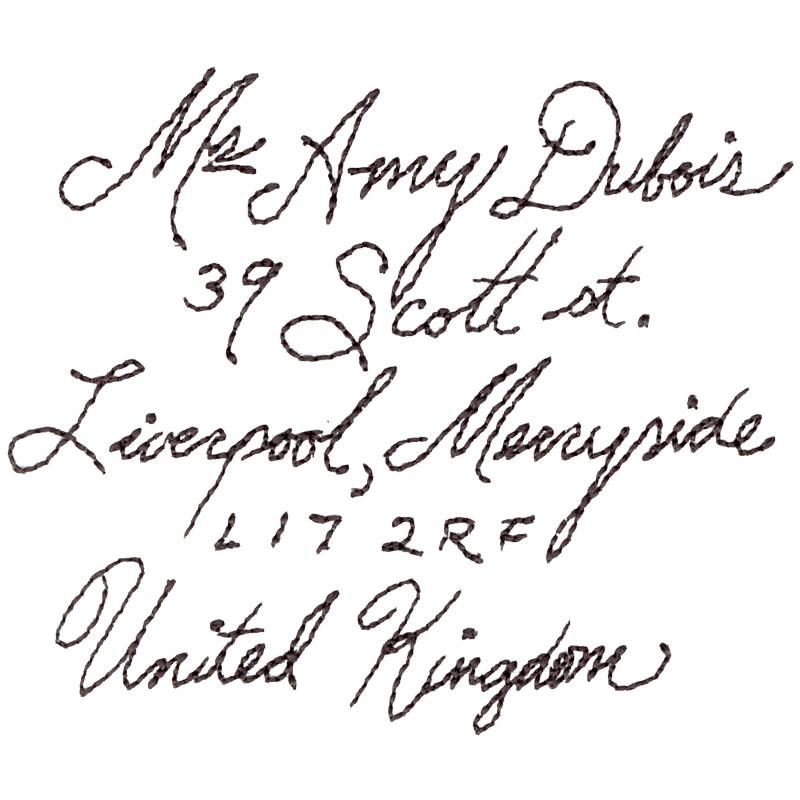 Mrs Amy Dubois
39 Scott st.
Liverpool, Merryside
L17 2RF
United Kingdom